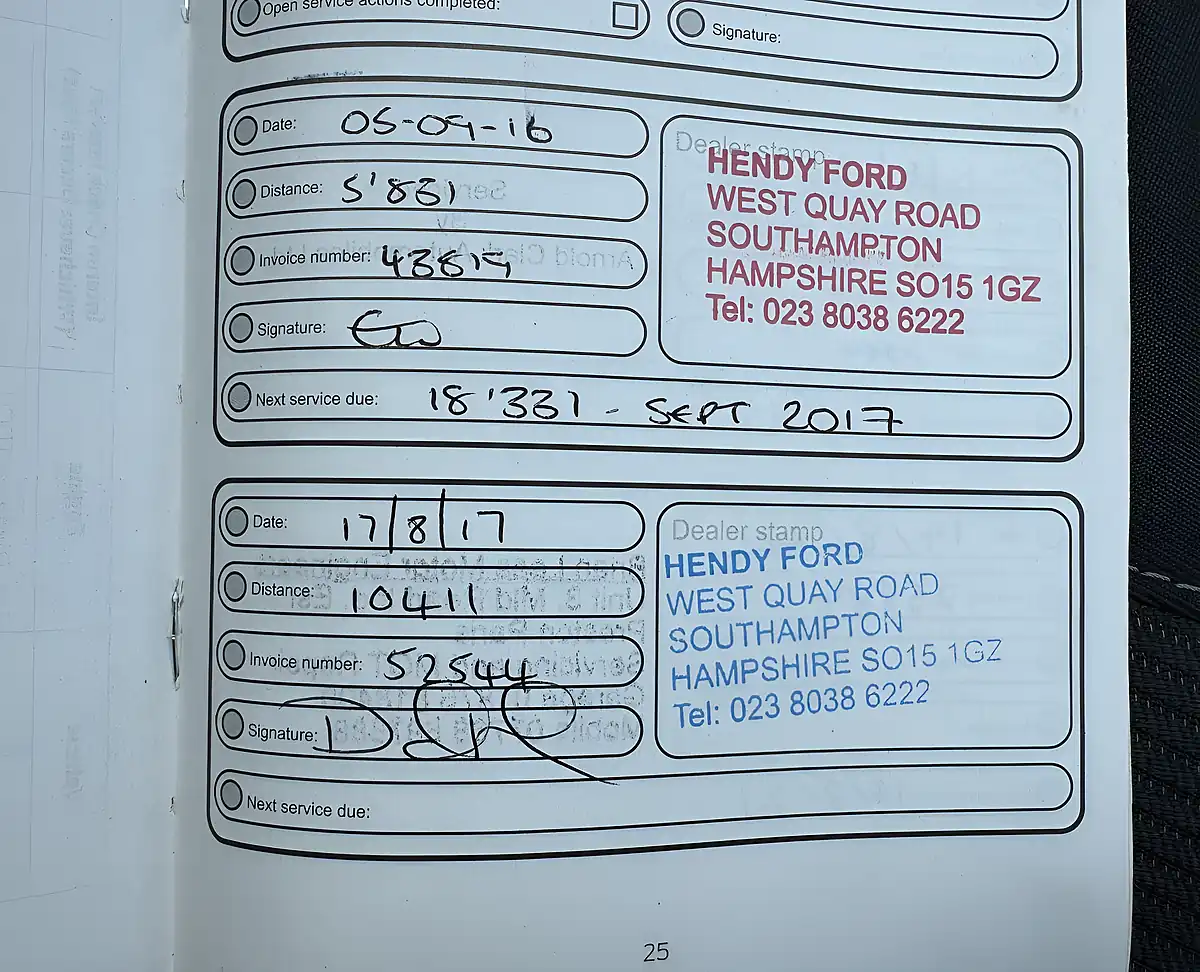 Open service actions completed:
Signature:
Date: 05-09-16
Distance: 5'831
Invoice number: 43819
Signature:
Dealer stamp
HENDY FORD
WEST QUAY ROAD
SOUTHAMPTON
HAMPSHIRE SO15 1GZ
Tel: 023 8038 6222
Next service due: 18'331 - SEPT 2017
Date: 17/8/17
Distance: 10411
Invoice number: 52544
Signature:
Dealer stamp
HENDY FORD
WEST QUAY ROAD
SOUTHAMPTON
HAMPSHIRE SO15 1GZ
Tel: 023 8038 6222
Next service due:
25